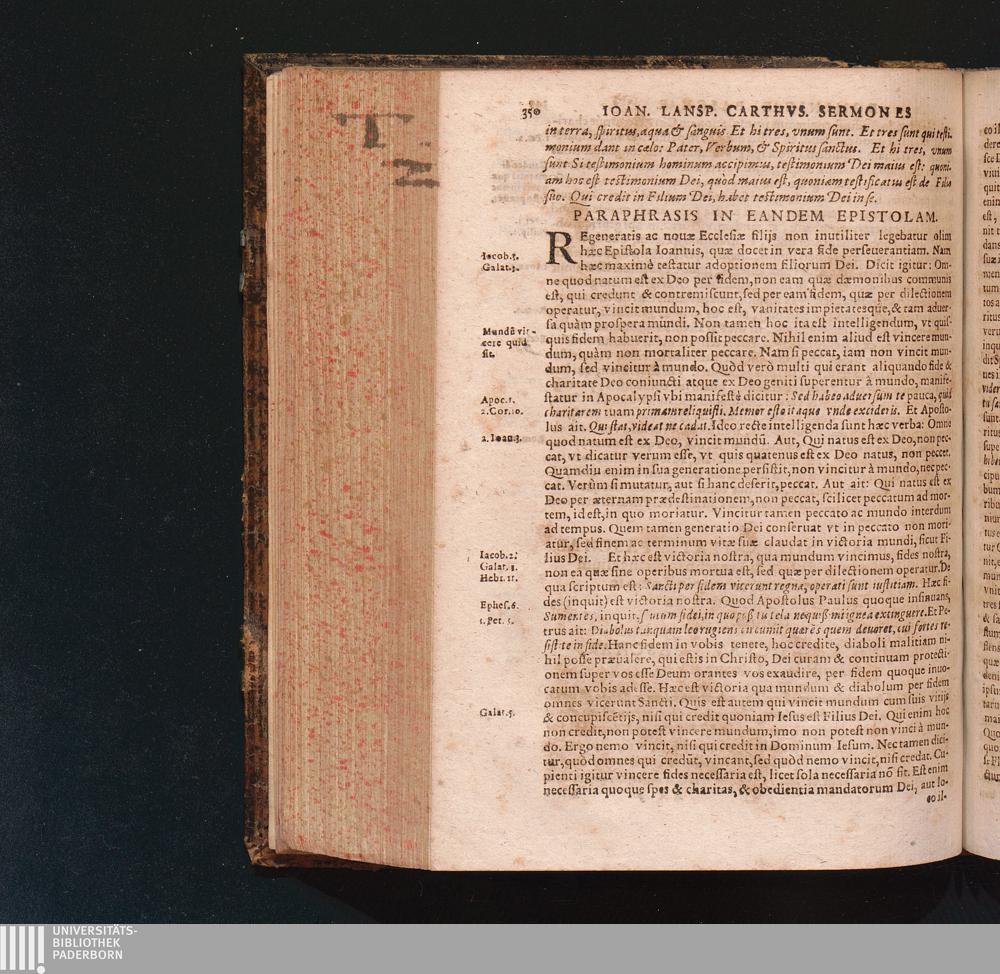 350 IOAN. LANSP. CARTHVS. SERMONES
in terra, spiritus, aqua & sanguis Et hi tres, vnum sunt. Et tres sunt qui testi-
monium dant in cælo: Pater, Verbum, & Spiritus sanctus. Et hi tres, vnum
sunt Si testimonium hominum accipimus, testimonium Dei maius est: quoni-
am hoc est testimonium Dei, quòd maius est, quoniam testificatus est de Filio
suo. Qui credit in Filium Dei, habet testimonium Dei in se.
PARAPHRASIS IN EANDEM EPISTOLAM.
REgeneratis ac nouæ Ecclesiæ filijs non inutiliter legebatur olim
Iacob.5. hæc Epistola Ioannis, quæ docet in vera fide perseuerantiam. Nam
Galat.3. hæc maximè testatur adoptionem filiorum Dei. Dicit igitur: Om-
ne quod natum est ex Deo per fidem, non eam quæ dæmonibus communis
est, qui credunt & contremiscunt, sed per eam fidem, quæ per dilectionem
operatur, vincit mundum, hoc est, vanitates impietatesque, & tam aduer-
Mundū vin- sa quàm prospera mundi. Non tamen hoc ita est intelligendum, vt quis-
cere quid quis fidem habuerit, non possit peccare. Nihil enim aliud est vincere mun-
sit. dum, quàm non mortaliter peccare. Nam si peccat, iam non vincit mun-
dum, sed vincitur à mundo. Quòd verò multi qui erant aliquando fide &
charitate Deo coniuncti atque ex Deo geniti superentur à mundo, manife-
Apoc.1. statur in Apocalypsi vbi manifestè dicitur: Sed habeo aduersum te pauca, quòd
2.Cor.10. charitatem tuam primam reliquisti. Memor esto itaque vnde excideris. Et Aposto-
lus ait. Qui stat, videat ne cadat. Ideo recte intelligenda sunt hæc verba: Omne
2.Ioan.3. quod natum est ex Deo, vincit mundū. Aut, Qui natus est ex Deo, non pec-
cat, vt dicatur verum esse, vt quis quatenus est ex Deo natus, non peccet.
Quamdiu enim in sua generatione persistit, non vincitur à mundo, nec pec-
cat. Verùm si mutatur, aut si hanc deserit, peccat. Aut ait: Qui natus est ex
Deo per æternam prædestinationem, non peccat, scilicet peccatum ad mor-
tem, id est, in quo moriatur. Vincitur tamen peccato ac mundo interdum
ad tempus. Quem tamen generatio Dei conseruat vt in peccato non mori-
atur, sed finem ac terminum vitæ suæ claudat in victoria mundi, sicut Fi-
Iacob.2. lius Dei. Et hæc est victoria nostra, qua mundum vincimus, fides nostra,
Galat.5. non ea quæ sine operibus mortua est, sed quæ per dilectionem operatur. De
Hebr.11. qua scriptum est: Sancti per fidem vicerunt regna, operati sunt iustitiam. Hæc fi-
des (inquit) est victoria nostra. Quod Apostolus Paulus quoque insinuans,
Ephes.6. Sumentes, inquit, scutum fidei, in quo possitis tela nequissimi ignea extinguere. Et Pe-
1.Pet.5. trus ait: Diabolus tanquam leo rugiens circumit quærēs quem deuoret, cui fortes re-
sistite in fide. Hanc fidem in vobis tenete, hoc credite, diaboli malitiam ni-
hil posse præualere, qui estis in Christo, Dei curam & continuam protecti-
onem super vos esse Deum orantes vos exaudire, per fidem quoque inuo-
catum vobis adesse. Hæc est victoria qua mundum & diabolum per fidem
omnes vicerunt Sancti. Quis est autem qui vincit mundum cum suis vitijs
Galat.5. & concupiscētijs, nisi qui credit quoniam Iesus est Filius Dei. Qui enim hoc
non credit, non potest vincere mundum, imo non potest non vinci à mun-
do. Ergo nemo vincit, nisi qui credit in Dominum Iesum. Nec tamen dici-
tur, quòd omnes qui credūt, vincant, sed quòd nemo vincit, nisi credat. Cu-
pienti igitur vincere fides necessaria est, licet sola necessaria nō sit. Est enim
necessaria quoque spes & charitas, & obedientia mandatorum Dei, aut lo-
co il-
T
N
UNIVERSITÄTS-
BIBLIOTHEK
PADERBORN